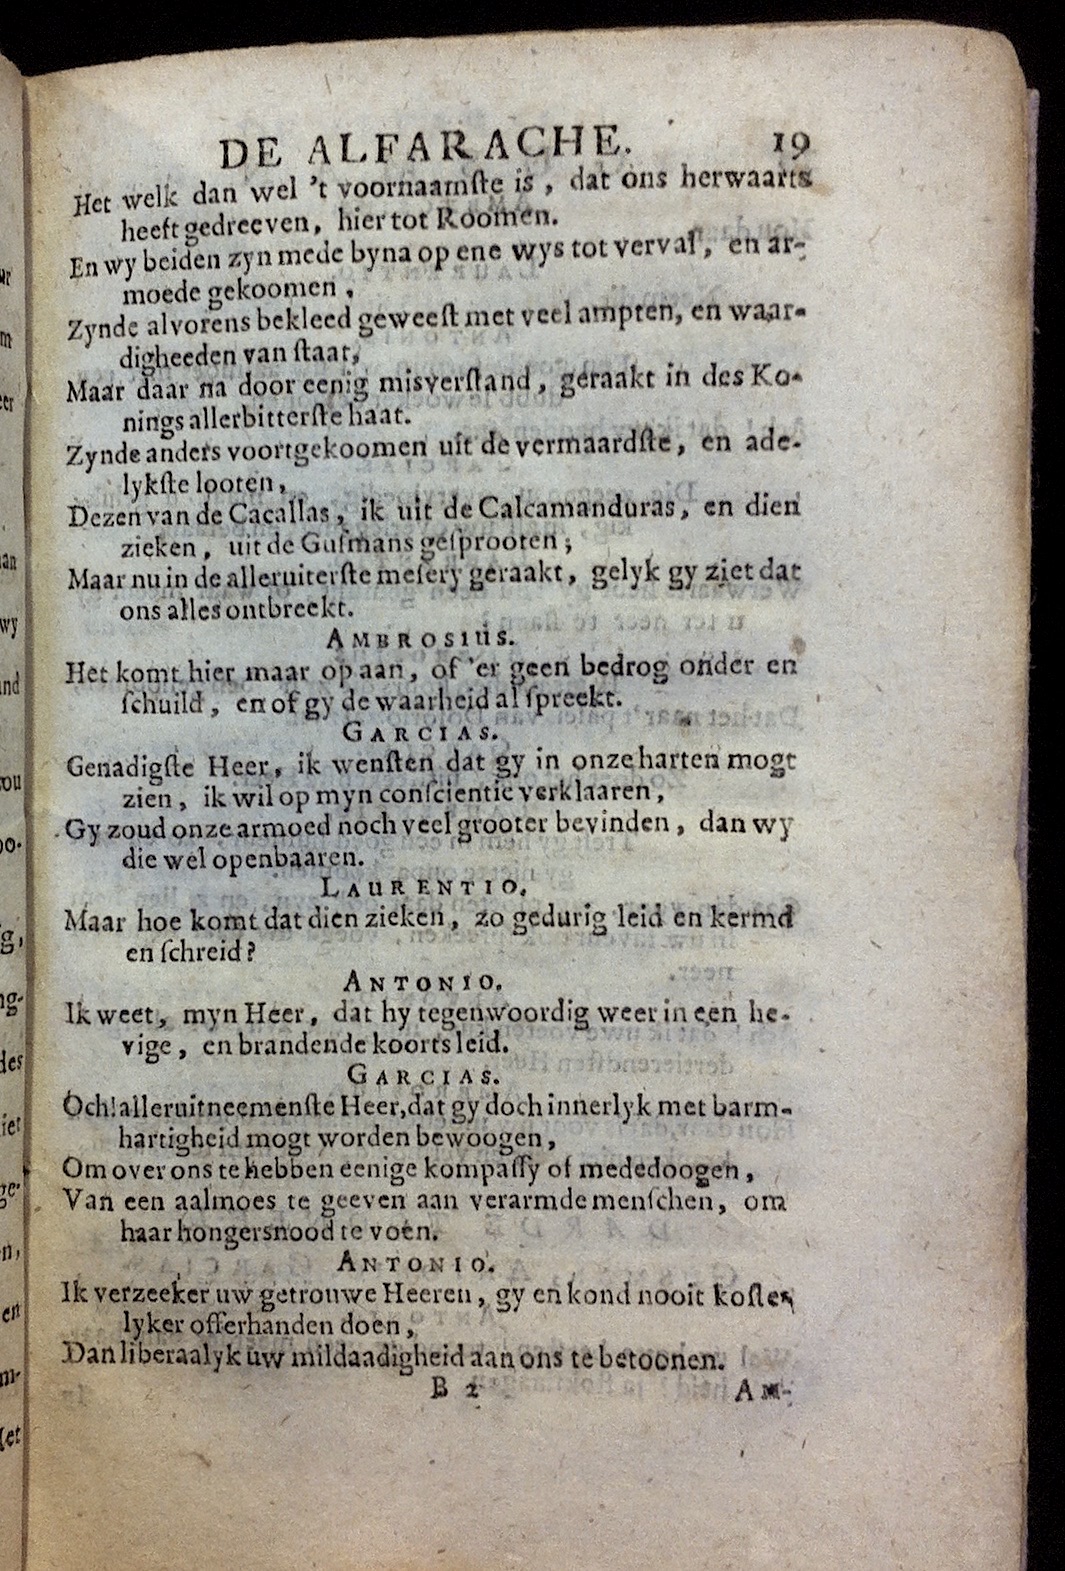 DE ALFARACHE. 19
Het welk dan wel 't voornaamſte is, dat ons herwaarts
heeft gedreeven, hier tot Roomen.
En wy beiden zyn mede byna op ene wys tot verval, en ar-
moede gekoomen,
Zynde alvorens bekleed geweeſt met veel ampten, en waar-
digheeden van ſtaat,
Maar daar na door eenig misverſtand, geraakt in des Ko-
nings allerbitterſte haat.
Zynde anders voortgekoomen uit de vermaardſte, en ade-
lykſte looten,
Dezen van de Cacallas, ik uit de Calcamanduras, en dien
zieken, uit de Guſmans geſprooten;
Maar nu in de alleruiterſte meſery geraakt, gelyk gy ziet dat
ons alles ontbreekt.
AMBROSIUS.
Het komt hier maar op aan, of 'er geen bedrog onder en
ſchuild, en of gy de waarheid al ſpreekt.
GARCIAS.
Genadigſte Heer, ik wenſten dat gy in onze harten mogt
zien, ik wil op myn conſcientie verklaaren,
Gy zoud onze armoed noch veel grooter bevinden, dan wy
die wel openbaaren.
LAURENTIO.
Maar hoe komt dat dien zieken, zo gedurig leid en kermd
en ſchreid?
ANTONIO.
Ik weet, myn Heer, dat hy tegenwoordig weer in een he-
vige, en brandende koorts leid.
GARCIAS.
Och! alleruitneemenſte Heer, dat gy doch innerlyk met barm-
hartigheid mogt worden bewoogen,
Om over ons te hebben eenige kompaſſy of mededoogen,
Van een aalmoes te geeven aan verarmde menſchen, om
haar hongersnood te voên.
ANTONIO.
Ik verzeeker uw getrouwe Heeren, gy en kond nooit koſte-
lyker offerhanden doen,
Dan liberaalyk uw mildaadigheid aan ons te betoonen.
B 2 AM-